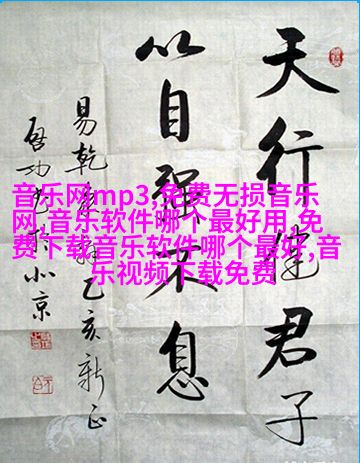 天行健君子
以自强不息
易乾乙亥新正
启功书於北京
音乐网mp3,免费无损音乐
网,音乐软件哪个最好用,免
费下载音乐软件哪个最好,音
乐视频下载免费